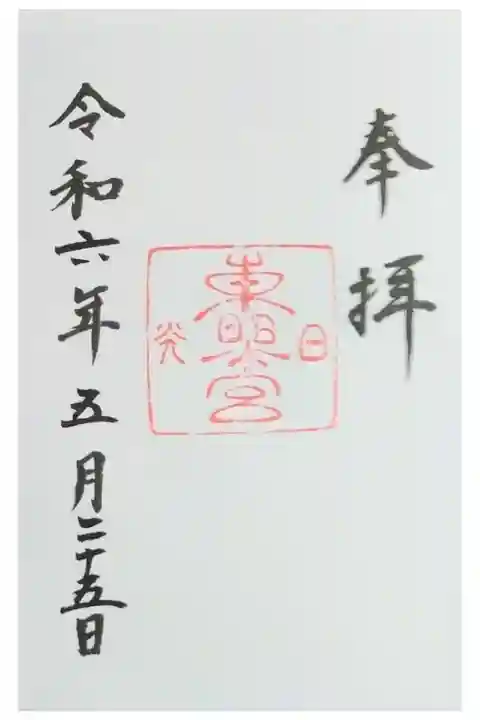 奉拝
日光
東照宮
令和六年五月二十五日